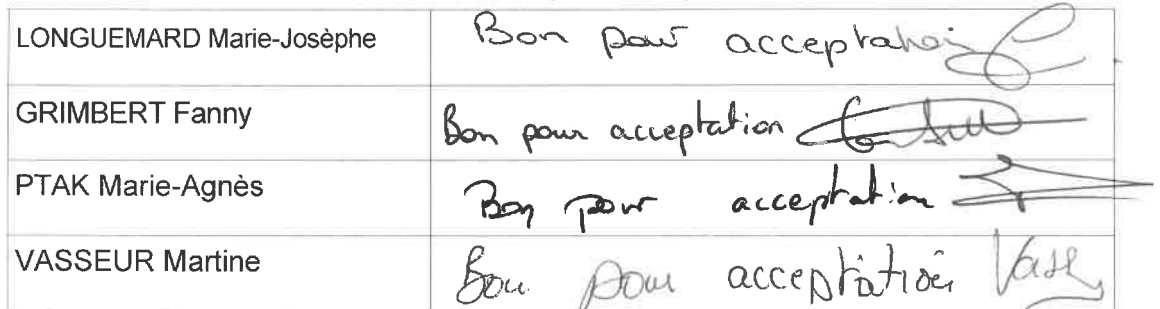 LONGUEMARD Marie-Josèphe Bon pour acceptation
GRIMBERT Fanny Bon pour acceptation
PTAK Marie-Agnès Bon pour acceptation
VASSEUR Martine Bon pour acceptation